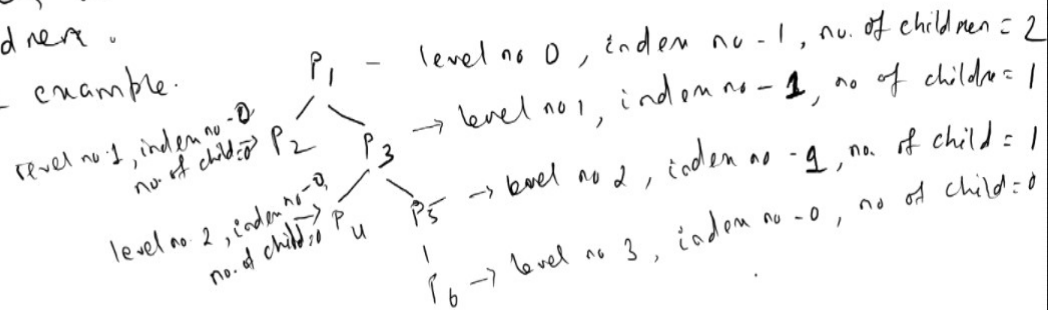 d here.
- example.
P1 - level no 0, index no - 1, no. of children = 2
level no. 1, index no - 0, no. of child = 0 → P2
P3 → level no 1, index no - 1, no of children = 1
level no. 2, index no - 0, no. of child = 0 → P4
P5 → level no 2, index no - 1, no. of child = 1
P6 → level no 3, index no - 0, no of child = 0